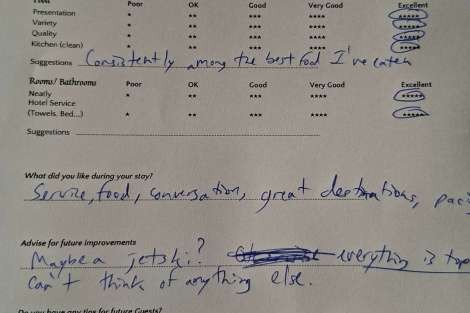 Poor OK Good Very Good Excellent
Presentation * ** *** **** *****
Variety * ** *** **** *****
Quality * ** *** **** *****
Kitchen (clean) * ** *** **** *****
Suggestions Consistently among the best food I've eaten
Rooms/ Bathrooms Poor OK Good Very Good Excellent
Neatly * ** *** **** *****
Hotel Service
(Towels. Bed...) * ** *** **** *****
Suggestions
What did you like during your stay?
Service, food, conversation, great destinations,
Advise for future improvements
Maybe a jetski? everything is top
Can't think of anything else.
Do you have any tips for future Guests?